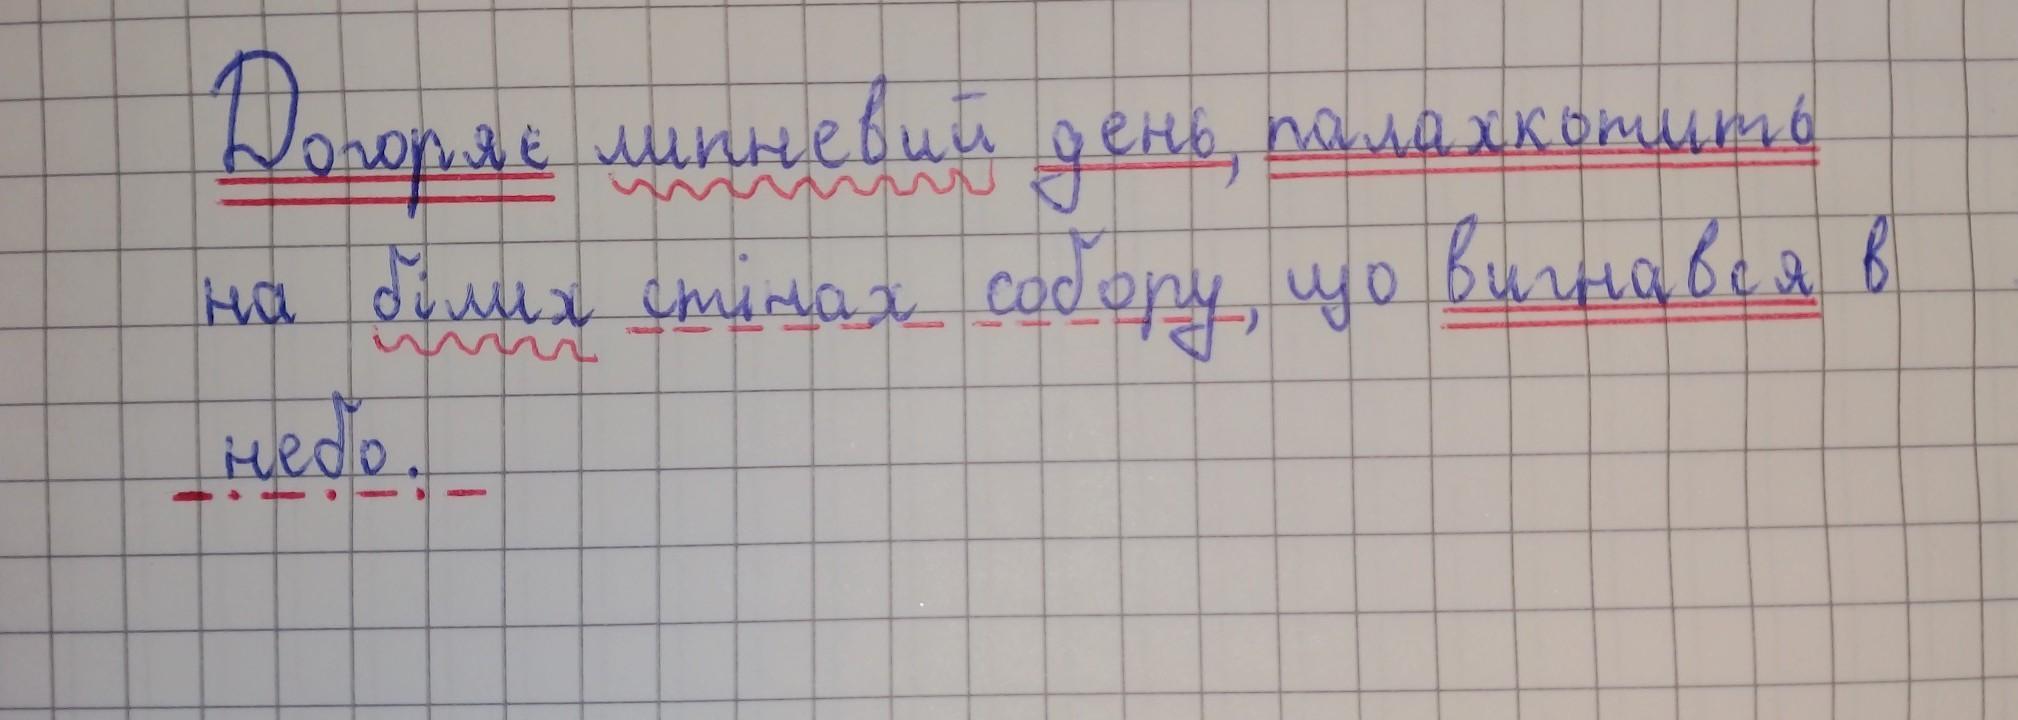 Догоряє липневий день, палахкотить
на білих стінах собору, що вигнався в
небо.